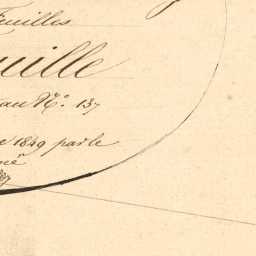 Feuilles
uille
au N.° 137
e 1849 par le